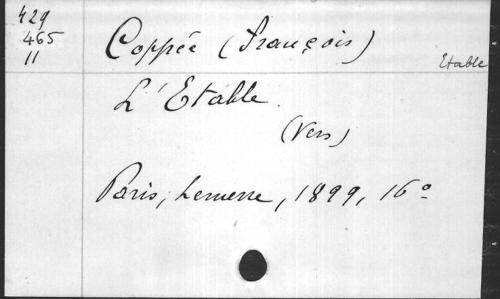 429
465
11
Coppée (François)
Etable
L'Etable.
(Vers)
Paris, Lemerre, 1899, 16°